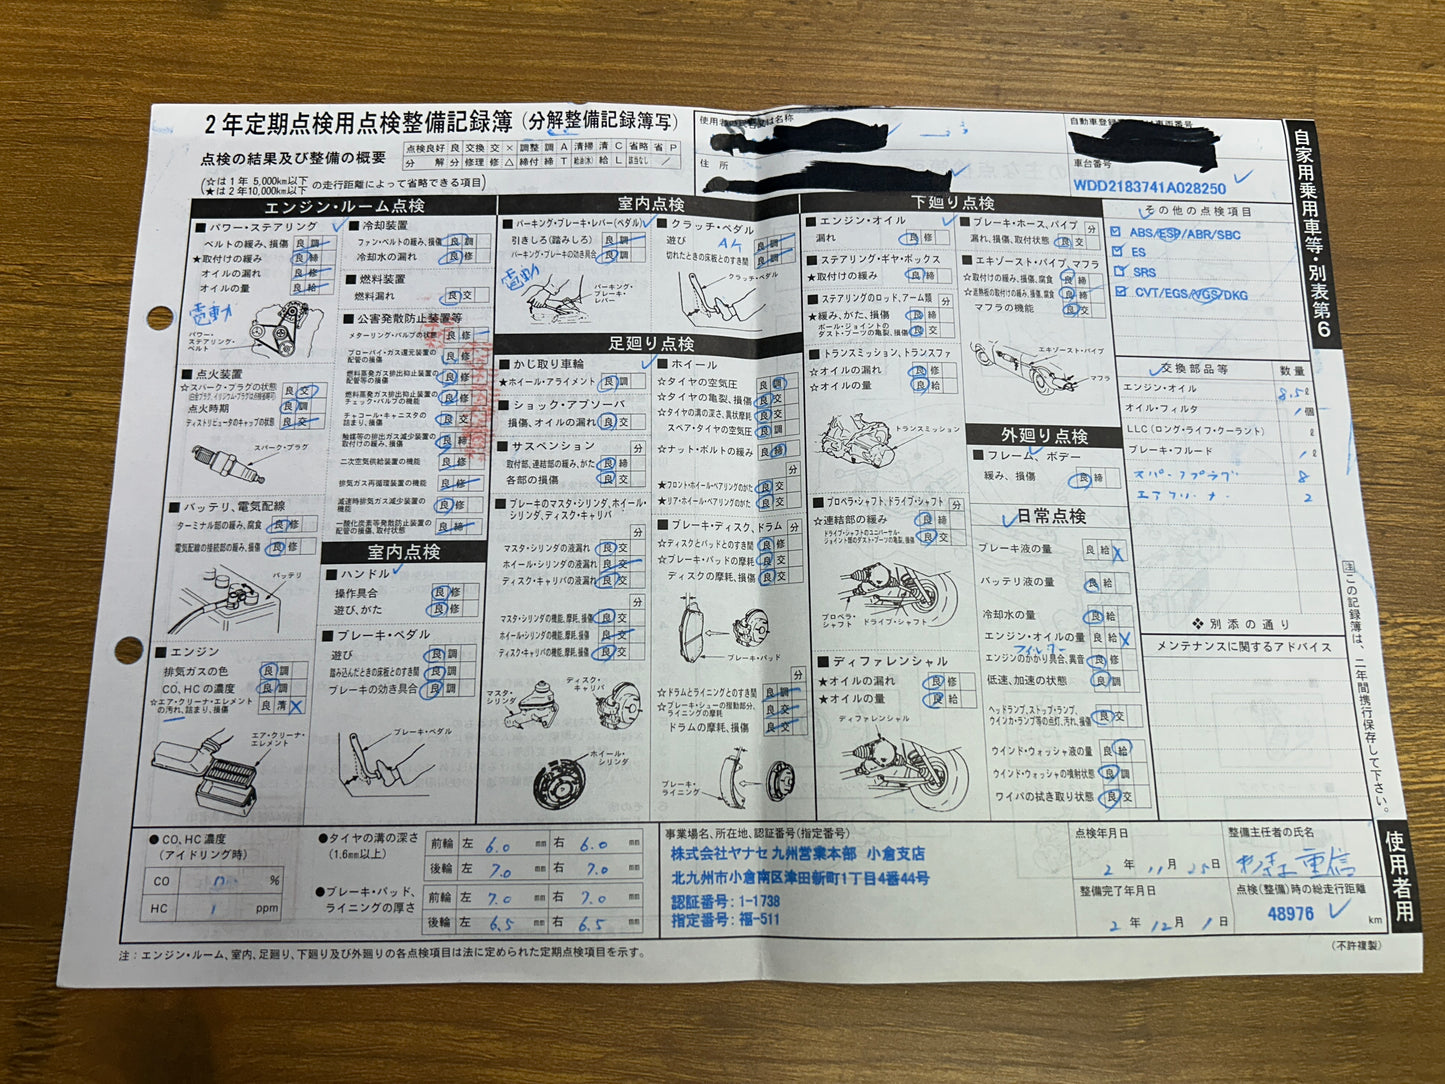 2年定期点検用点検整備記録簿(分解整備記録簿写)
点検の結果及び整備の概要
点検良好 良 交換 交 × 調整 調 A 清掃 清 C 省略 省 P
分解 分 修理 修 △ 締付 締 T 給油(水) 給 L 該当なし /
(☆は1年 5,000km以下
★は2年10,000km以下 の走行距離によって省略できる項目)
使用者の氏名又は名称
住所
車台番号
WDD2183741A028250
自家用乗用車等・別表第6
エンジン・ルーム点検
■パワー・ステアリング
ベルトの緩み、損傷 良 調
★取付けの緩み 良 締
オイルの漏れ 良 修
オイルの量 良 給
電動
パワー・
ステアリング・
ベルト
■点火装置
☆スパーク・プラグの状態 良 交
点火時期 良 調
ディストリビュータのキャップの状態 良 交
スパーク・プラグ
■バッテリ、電気配線
ターミナル部の緩み、腐食 良 修
電気配線の接続部の緩み、損傷 良 修
バッテリ
■エンジン
排気ガスの色 良 調
CO、HCの濃度 良 調
☆エア・クリーナ・エレメント
の汚れ、詰まり、損傷 良 清 X
エア・クリーナ・
エレメント
■冷却装置
ファン・ベルトの緩み、損傷 良 調
冷却水の漏れ 良 修
■燃料装置
燃料漏れ 良 交
■公害発散防止装置等
メターリング・バルブの状態 良 修
ブローバイ・ガス還元装置の
配管の損傷 良 修
燃料蒸発ガス排出抑止装置の
配管等の損傷 良 修
燃料蒸発ガス排出抑止装置の
チェック・バルブの機能 良 修
チャコール・キャニスタの
詰まり、損傷 良 交
触媒等の排出ガス減少装置の
取付けの緩み、損傷 良 締
二次空気供給装置の機能 良 修
排気ガス再循環装置の機能 良 修
減速時排気ガス減少装置の
機能 良 修
一酸化炭素等発散防止装置の
配管の損傷、取付状態 良 締
室内点検
■ハンドル
操作具合 良 修
遊び、がた 良 修
■ブレーキ・ペダル
遊び 良 調
踏み込んだときの床板とのすき間 良 調
ブレーキの効き具合 良 調
ブレーキ・ペダル
室内点検
■パーキング・ブレーキ・レバー(ペダル)
引きしろ(踏みしろ) 良 調
パーキング・ブレーキの効き具合 良 調
電動
パーキング・
ブレーキ・
レバー
■クラッチ・ペダル
遊び 良 調
切れたときの床板とのすき間 良 調
クラッチ・ペダル
足廻り点検
■かじ取り車輪
★ホイール・アライメント 良 調
■ショック・アブソーバ
損傷、オイルの漏れ 良 交
■サスペンション
取付部、連結部の緩み、がた 良 締
各部の損傷 良 交
■ブレーキのマスタ・シリンダ、ホイール・
シリンダ、ディスク・キャリパ
分
マスタ・シリンダの液漏れ 良 交
ホイール・シリンダの液漏れ 良 交
ディスク・キャリパの液漏れ 良 交
分
マスタ・シリンダの機能、摩耗、損傷 良 交
ホイール・シリンダの機能、摩耗、損傷 良 交
ディスク・キャリパの機能、摩耗、損傷 良 交
マスタ・
シリンダ
ディスク・
キャリパ
ホイール・
シリンダ
■ホイール
☆タイヤの空気圧 良 調
☆タイヤの亀裂、損傷 良 交
☆タイヤの溝の深さ、異状摩耗 良 交
スペア・タイヤの空気圧 良 調
☆ナット・ボルトの緩み 良 締
分
★フロント・ホイール・ベアリングのがた 良 交
★リア・ホイール・ベアリングのがた 良 交
■ブレーキ・ディスク、ドラム 分
☆ディスクとパッドとのすき間 良 修
☆ブレーキ・パッドの摩耗 良 交
ディスクの摩耗、損傷 良 交
ブレーキ・パッド
分
☆ドラムとライニングとのすき間 良 調
☆ブレーキ・シューの摺動部分、
ライニングの摩耗 良 交
ドラムの摩耗、損傷 良 交
ブレーキ・
ライニング
下廻り点検
■エンジン・オイル
漏れ 良 修
■ステアリング・ギヤ・ボックス
★取付けの緩み 良 締
■ステアリングのロッド、アーム類 分
★緩み、がた、損傷 良 締
ボール・ジョイントの
ダスト・ブーツの亀裂、損傷 良 交
■トランスミッション、トランスファ
☆オイルの漏れ 良 修
☆オイルの量 良 給
トランスミッション
■プロペラ・シャフト、ドライブ・シャフト 分
☆連結部の緩み 良 締
ドライブ・シャフトのユニバーサル・
ジョイント部のダスト・ブーツの亀裂、損傷 良 交
プロペラ・
シャフト
ドライブ・シャフト
■ディファレンシャル
★オイルの漏れ 良 修
★オイルの量 良 給
ディファレンシャル
■ブレーキ・ホース、パイプ
漏れ、損傷、取付状態 良 交
■エキゾースト・パイプ、マフラ
☆取付けの緩み、損傷、腐食 良 締
☆遮熱板の取付けの緩み、損傷、腐食 良 締
マフラの機能 良 交
エキゾースト・パイプ
マフラ
外廻り点検
■フレーム、ボデー
緩み、損傷 良 締
日常点検
ブレーキ液の量 良 給 X
バッテリ液の量 良 給
冷却水の量 良 給
エンジン・オイルの量 良 給 X
エンジンのかかり具合、異音 良 修
低速、加速の状態 良 調
ヘッドランプ、ストップ・ランプ、
ウインカ・ランプ等の点灯、汚れ、損傷 良 交
ウインド・ウォッシャ液の量 良 給
ウインド・ウォッシャの噴射状態 良 調
ワイパの拭き取り状態 良 交
その他の点検項目
ABS/ESP/ABR/SBC
ES
SRS
CVT/EGS/VGS/DKG
交換部品等 数量
エンジン・オイル 8.5ℓ
オイル・フィルタ 1個
LLC(ロング・ライフ・クーラント) ℓ
ブレーキ・フルード 1ℓ
スパークプラグ 8
エアクリーナ 2
❖別添の通り
メンテナンスに関するアドバイス
注 この記録簿は、二年間携行保存して下さい。
使用者用
●CO、HC濃度
(アイドリング時)
CO %
HC 1 ppm
●タイヤの溝の深さ
(1.6mm以上)
前輪 左 6.0 mm 右 6.0 mm
後輪 左 7.0 mm 右 7.0 mm
●ブレーキ・パッド、
ライニングの厚さ
前輪 左 7.0 mm 右 7.0 mm
後輪 左 6.5 mm 右 6.5 mm
事業場名、所在地、認証番号(指定番号)
株式会社ヤナセ 九州営業本部 小倉支店
北九州市小倉南区津田新町1丁目4番44号
認証番号:1-1738
指定番号:福-511
点検年月日
2年 11月 25日
整備完了年月日
2年 12月 1日
整備主任者の氏名
点検(整備)時の総走行距離
48976 km
注:エンジン・ルーム、室内、足廻り、下廻り及び外廻りの各点検項目は法に定められた定期点検項目を示す。
(不許複製)